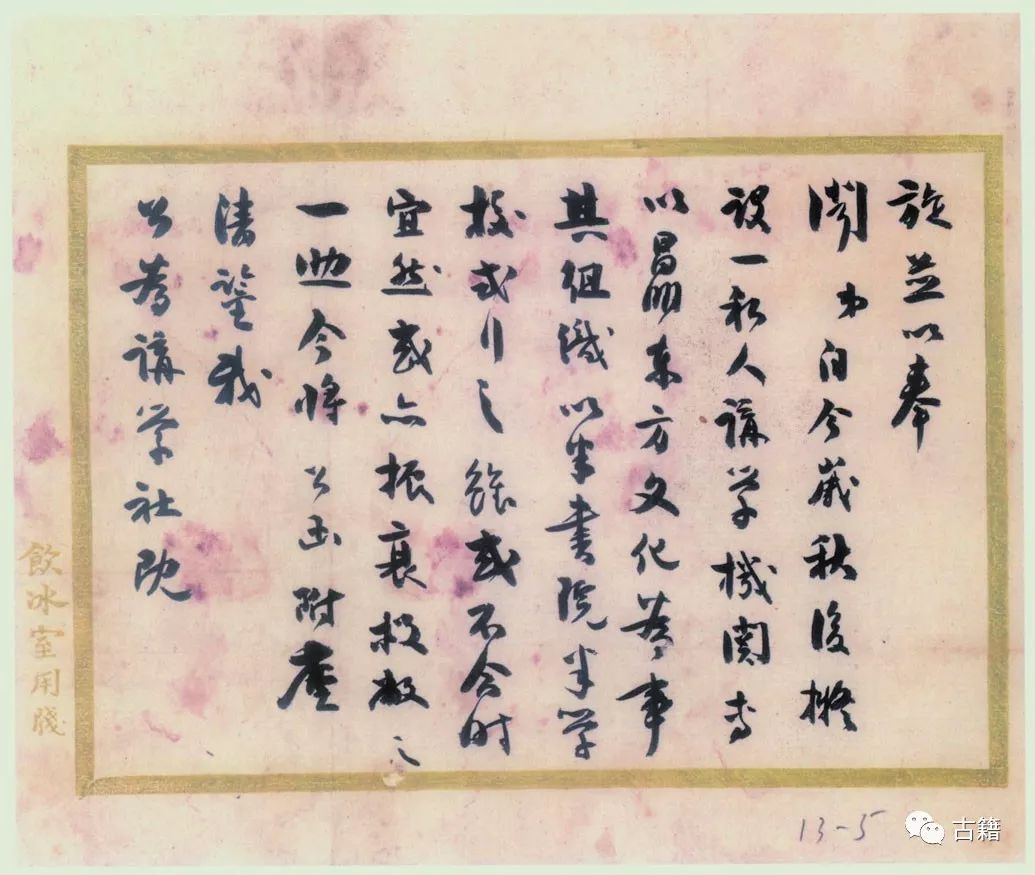 旋並以奉
聞弟自今歲秋後擬
設一私人講學機關專
以昌明東方文化為事
其組織以半書院半學
校式行之雖或不合時
宜然或亦振衰救敝之
一助今將公函附塵
清鑒我
公為講學社
飲冰室用牋
13-5
古籍